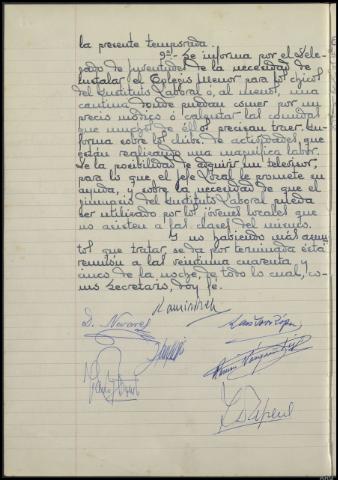 la presente temporada.
9ª.- Se informa por el Dele-
gado de Juventudes de la necesidad de
instalar el Colegio Menor para los chicos
del Instituto Laboral o, al menos, una
cantina donde puedan comer por un
precio módico o calentar las comidas
que muchos de éllos precisan traer. In-
forma sobre los clubs de actividades, que
están realizando una magnífica labor.
De la posibilidad de adquirir un televisor,
para lo que, el Jefe Local le promete su
ayuda, y sobre la necesidad de que el
gimnasio del Instituto Laboral pueda
ser utilizado por los jóvenes locales que
no asisten a las clases del mismo.
Y no habiendo más asun-
tos que tratar, se da por terminada esta
reunión a las veintiuna cuarenta y
cinco de la noche, de todo lo cual, co-
mo Secretario, doy fe.
D. Navarro